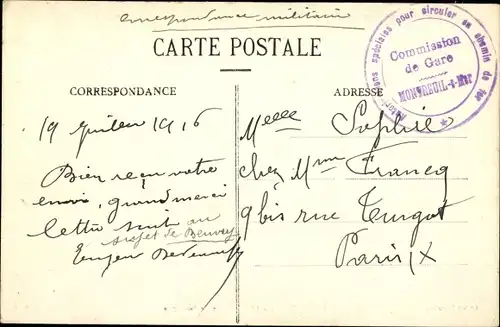 Correspondance militaire
CARTE POSTALE
CORRESPONDANCE
ADRESSE
spéciales pour circuler en chemin de fer
Commission
de Gare
MONTREUIL-s-Mer
19 Juillet 1916
Bien reçu votre
envoi, grand merci
lettre suit
au sujet de
Melle Sophie
chez Mme Francq
9 bis rue Turgot
Paris IX